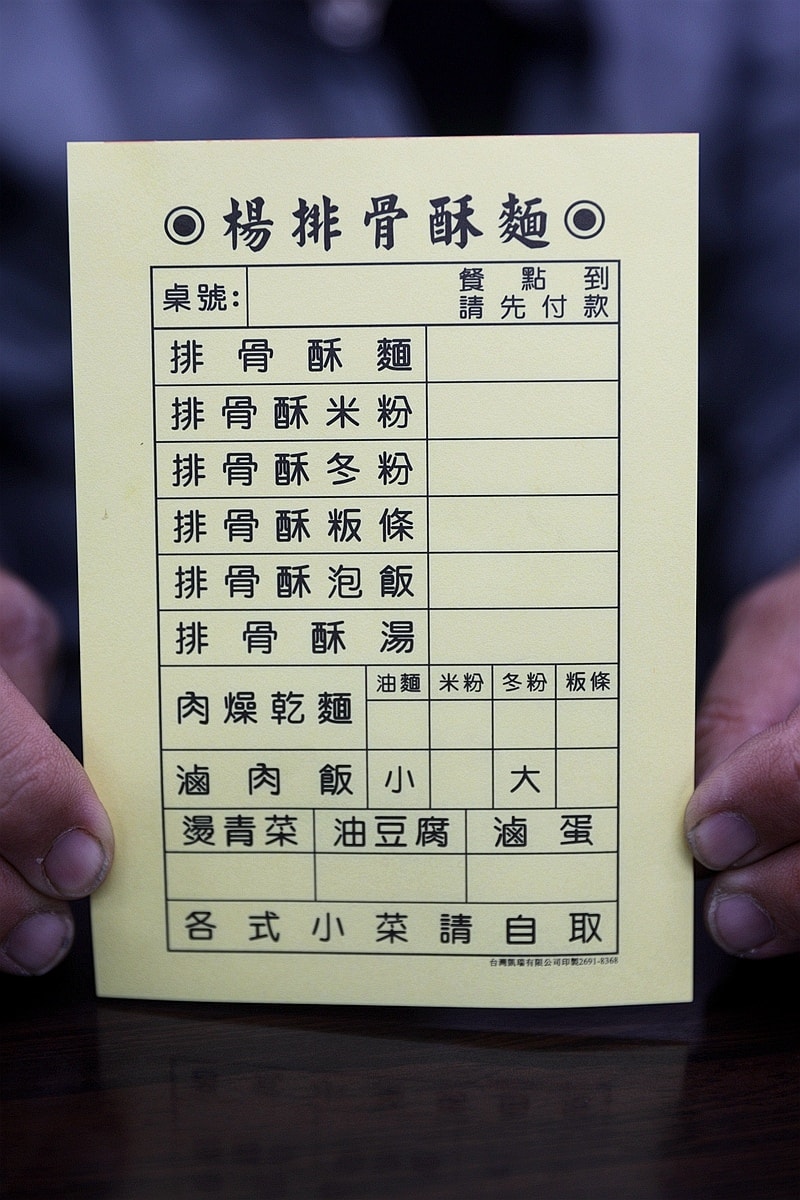 楊排骨酥麵
桌號:
餐點到
請先付款
排骨酥麵
排骨酥米粉
排骨酥冬粉
排骨酥粄條
排骨酥泡飯
排骨酥湯
肉燥乾麵 油麵 米粉 冬粉 粄條
滷肉飯 小 大
燙青菜 油豆腐 滷蛋
各式小菜請自取
台灣凱瑞有限公司印製2691-8368